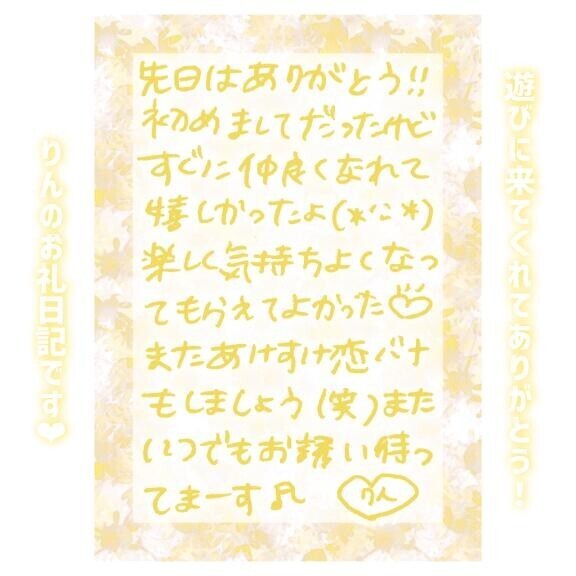 遊びに来てくれてありがとう!
先日はありがとう!!
初めましてだったけど
すぐに仲良くなれて
嬉しかったよ(*^^*)
楽しく気持ちよくなっ
てもらえてよかった♡
またあけすけ恋バナ
もしましょう(笑)また
いつでもお誘い待っ
てまーす♬ りん
りんのお礼日記です❤